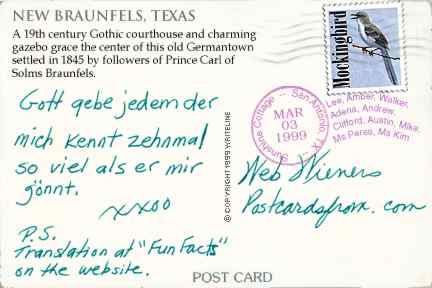 NEW BRAUNFELS, TEXAS
A 19th century Gothic courthouse and charming
gazebo grace the center of this old Germantown
settled in 1845 by followers of Prince Carl of
Solms Braunfels.
Gott gebe jedem der
mich kennt zehnmal
so viel als er mir
gönnt.
xxoo
P.S.
Translation at "Fun Facts"
on the website.
© COPYRIGHT 1999 WRITELINE
Mockingbird
Sunshine Cottage -- San Antonio, TX
MAR
03
1999
Lee, Amber, Walker,
Adena, Andrew,
Clifford, Austin, Mike,
Ms Perea, Ms Kim
Web Wieners
Postcardsfrom.com
POST CARD